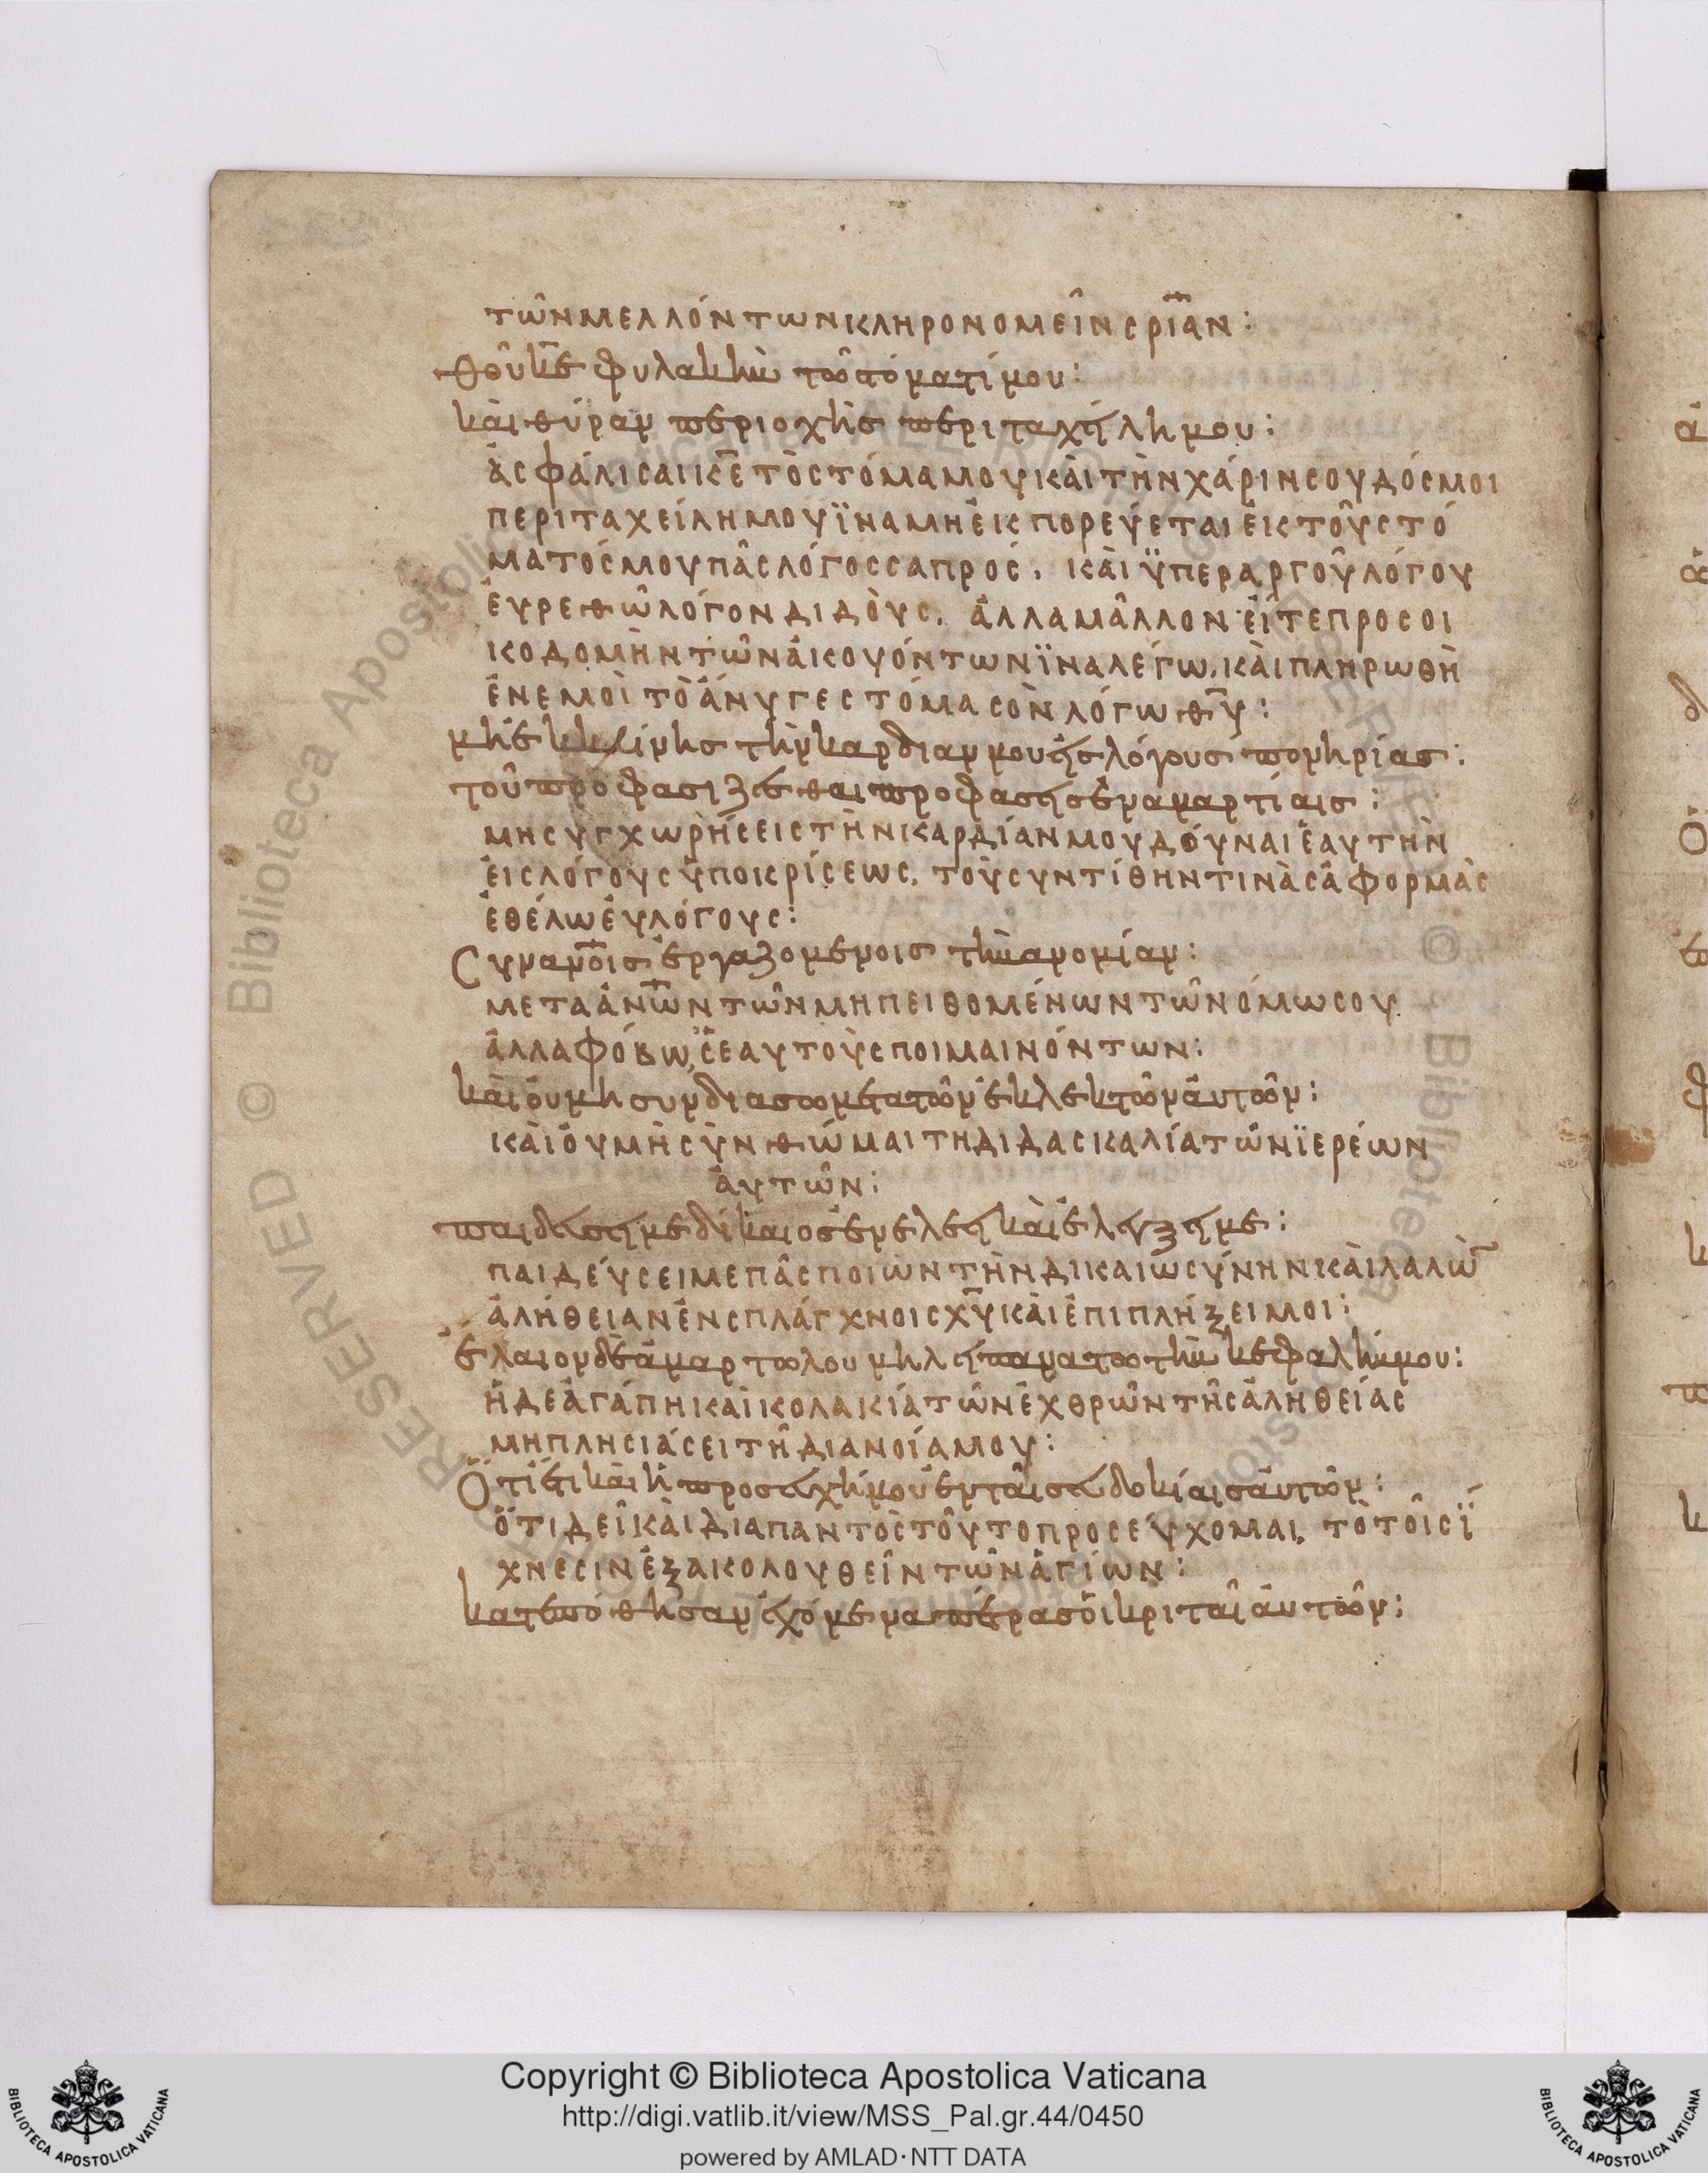 τῶν μελλόντων κληρονομεῖν σρ̅ιαν :
θοῦ κ̅ε φυλακὴν τῶ στόματί μου :
καὶ θύραν περιοχὴς περι τα χείλη μου :
ἀσφάλισαι κ̅ε τὸ στόμα μου καὶ τὴν χάριν σου δός μοι
περι τα χείλη μου ϊνα μὴ ἐκπορεύεται ἐκ τοῦ στό
ματός μου πᾶς λόγος σαπρός. καὶ ϋπερ αργοῦ λόγου
εὑρεθῶ λόγον διδοὺς. ἀλλα μᾶλλον εἴ τε προς οι
κοδομὴν τῶν ἀκουόντων ϊνα λέγω. καὶ πληρωθὴ
ἐν εμοὶ τὸ ἄνυγε στόμα σὸν λόγω θ̅υ :
μὴ ἐκκλίνης τὴν καρδιαν μου εἰς λόγους πονηρίας :
τοῦ προφασιζεσθαι προφασεις ἐν αμαρτίαις :
μη συγχωρήσεις τὴν καρδίαν μου δούναι ἑαυτὴν
εἰς λόγους ϋποκρίσεως. τοὺ συντίθην τινὰς ἀφορμὰς
ἐθέλω ἐυλόγους :
Συν αν̅οις ἐργαζομενοις τὴν ανομίαν :
μετα ἀν̅ων τῶν μη πειθομένων τῶ νόμω σου
ἀλλα φόβω, σἑαυτοὺς ποιμαινόντων :
καὶ ὀυ μη συνδιασω μετα τῶν ἐκλεκτῶν ἀυτῶν :
καὶ ὀυ μὴ σὺνθώμαι τη διδασκαλία τῶν ϊερέων
ἀυτῶν :
παιδευσει με δίκαιος ἐν ελεει καὶ ἐλεγξει με :
παιδεύσει με πᾶς ποιὼν τὴν δικαιωσύνην καὶ λαλὼ̅
ἀλήθειαν ἐν σπλάγχνοις χ̅υ καὶ ἐπιπλήξει μοι :
ἐλαιον δὲ ἁμαρτωλου μη λειπανατω τὴν κεφαλήν μου :
ἡ δε ἀγάπη καὶ κολακία τῶν ἐχθρῶν τῆς ἀληθείας
μη πλησιάσει τῆ διανοία μου :
Ὅτι ἔτι καὶ ἡ προσευχή μου ἐν ταῖς ευδοκίαις ἀυτῶν :
ὅτι δεῖ καὶ διαπαντὸς τοῦτο προσεύχομαι. το τοῖς ϊ
χνεσιν ἐξακολουθεῖν τῶν ἁγίων :
κατεπόθησαν ἐχόμενα πέτρας ὁι κριταὶ ἀυτῶν :
Copyright © Biblioteca Apostolica Vaticana
http://digi.vatlib.it/view/MSS_Pal.gr.44/0450
powered by AMLAD·NTT DATA
BIBLIOTECA APOSTOLICA VATICANA
BIBLIOTECA APOSTOLICA VATICANA